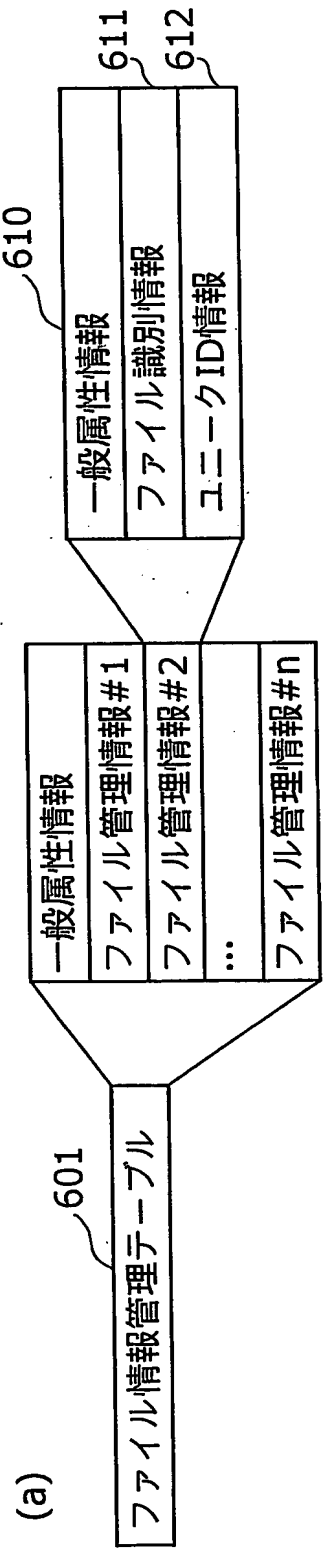 (a)
601
ファイル情報管理テーブル
一般属性情報
ファイル管理情報#1
ファイル管理情報#2
...
ファイル管理情報#n
610
一般属性情報
ファイル識別情報
611
ユニークID情報
612